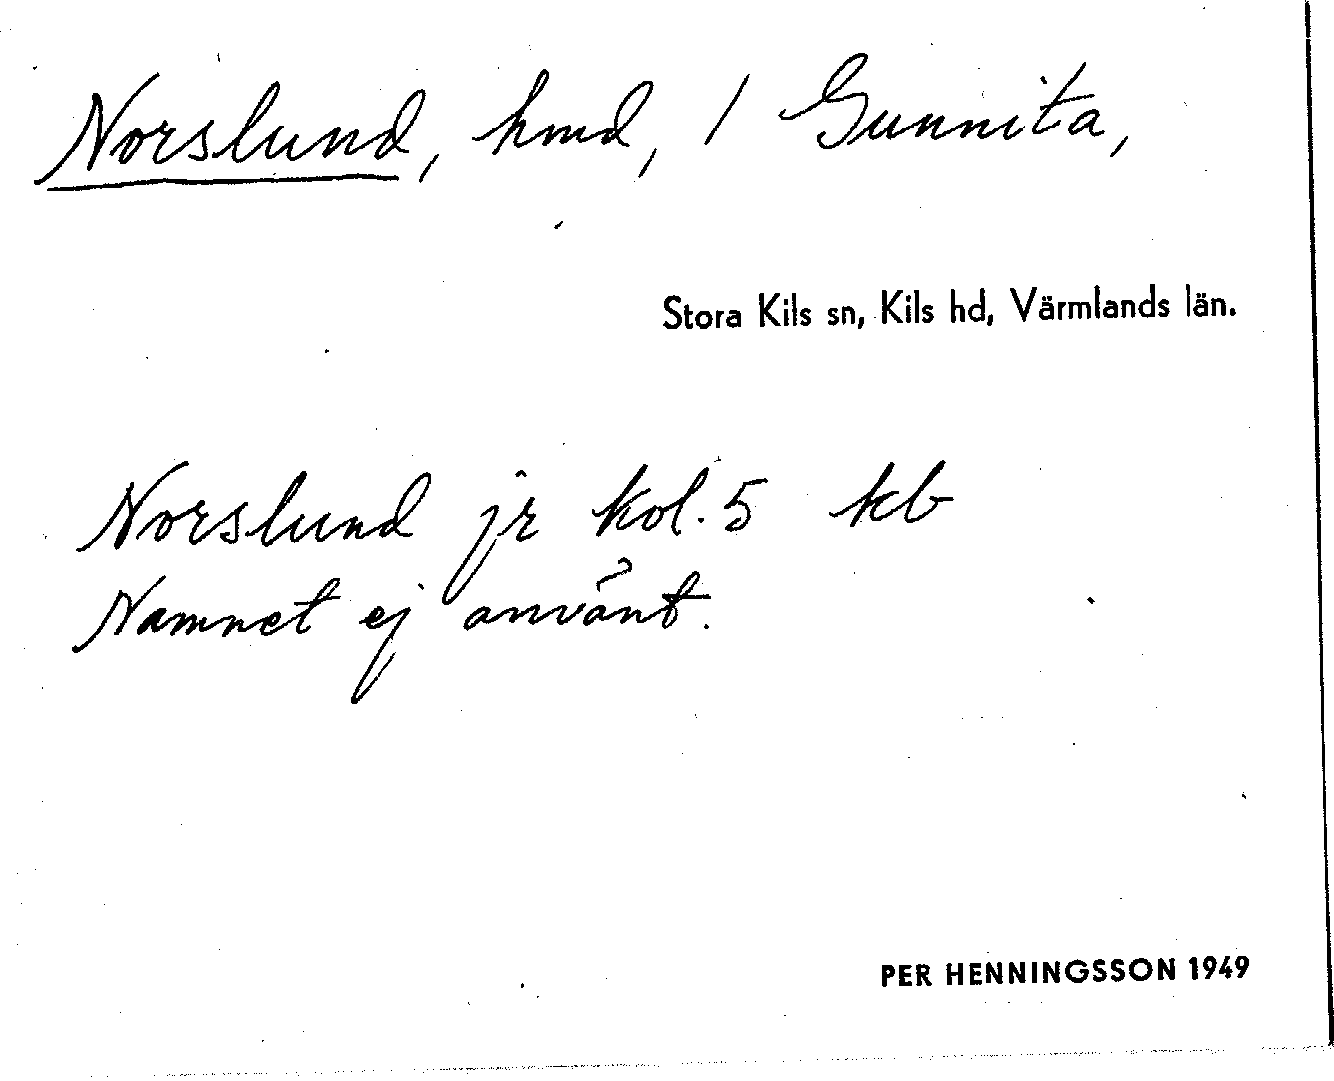 Norslund, hmd, / Gunnita,
Stora Kils sn, Kils hd, Värmlands län.
Norslund jr kol. 5 kb
Namnet ej använt.
PER HENNINGSSON 1949